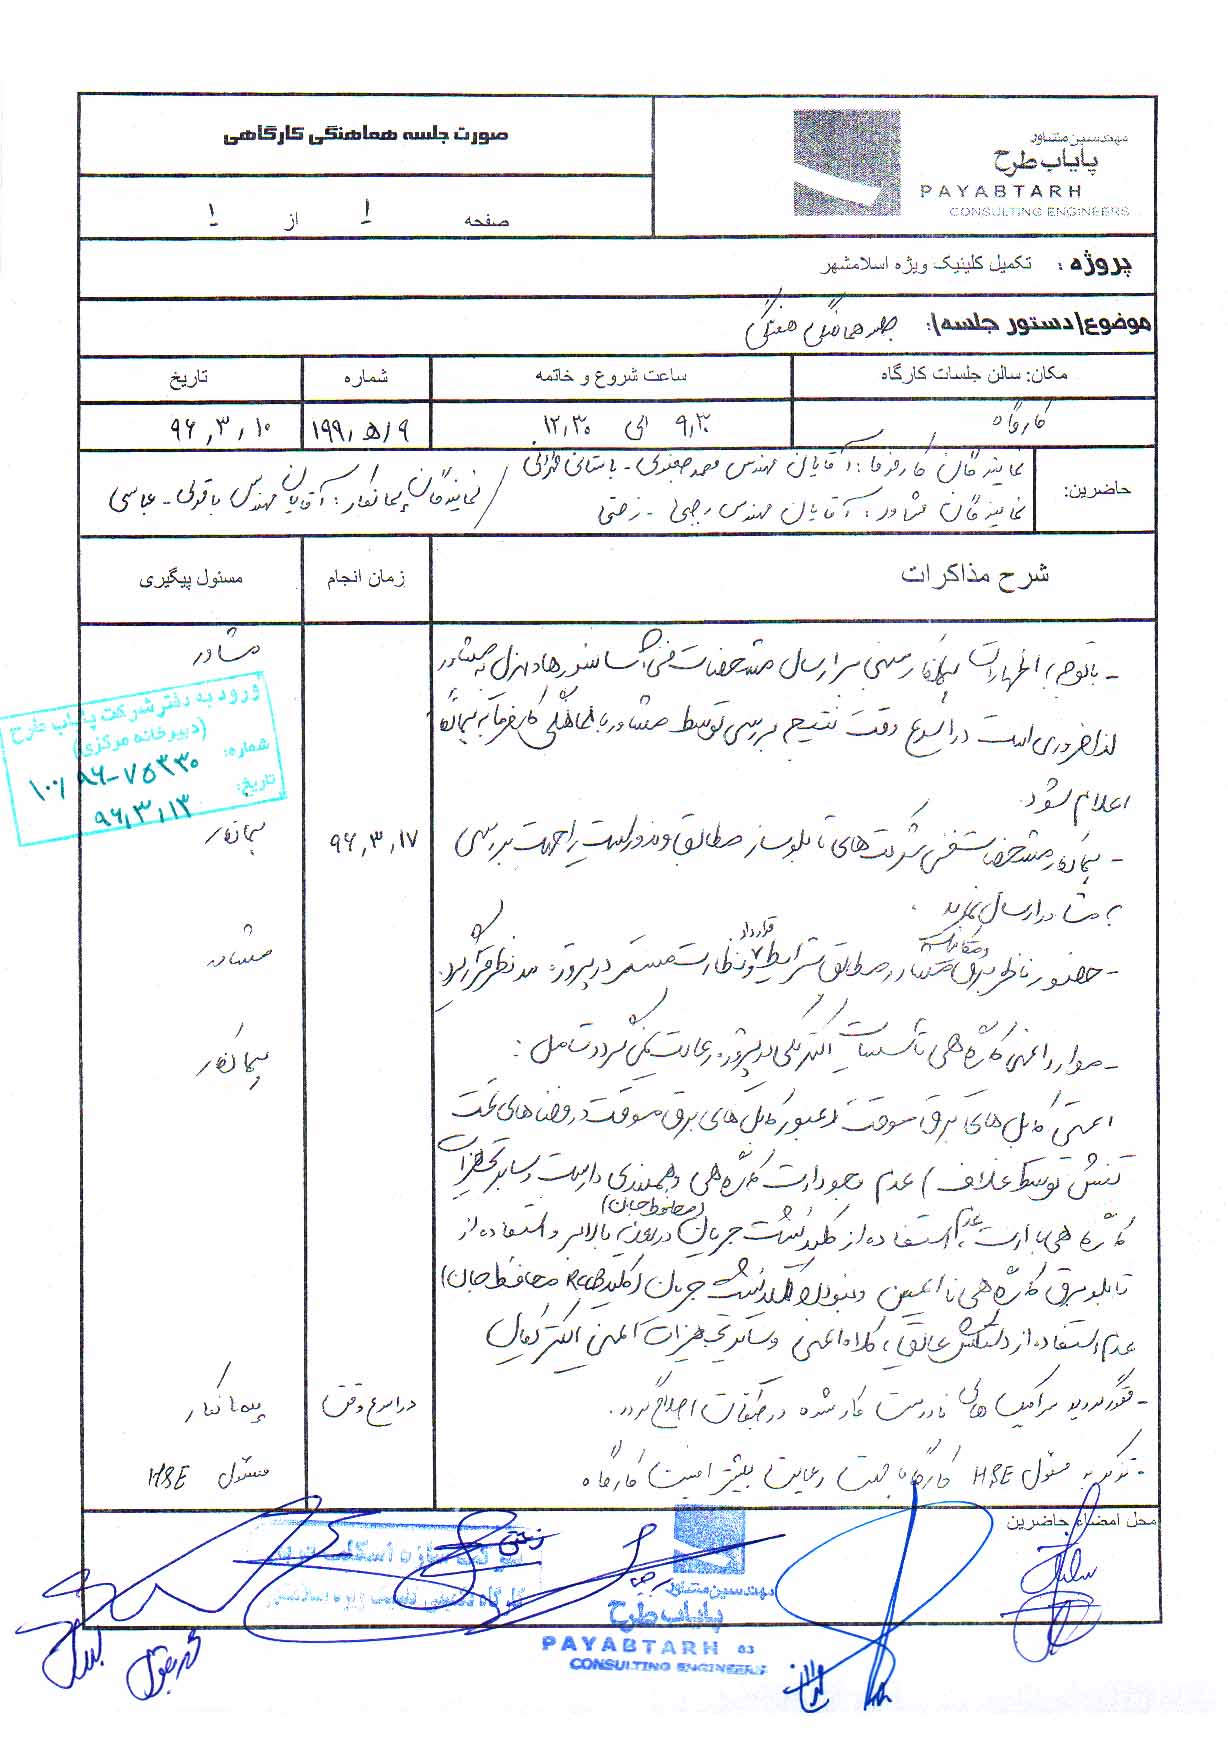 صورت جلسه هماهنگی کارگاهی
مهندسین مشاور
پایاب طرح
PAYABTARH
CONSULTING ENGINEERS
صفحه ۱ از ۱
پروژه : تکمیل کلینیک ویژه اسلامشهر
موضوع\دستور جلسه\: جلسه هماهنگی هفتگی
مکان: سالن جلسات کارگاه
ساعت شروع و خاتمه
شماره
تاریخ
کارگاه
۹,۳۰ الی ۱۲,۳۰
۱۹۹/ه/۹
۹۶,۳,۱۰
حاضرین:
نمایندگان کارفرما : آقایان مهندس محمد جعفری - باستانی
نمایندگان مشاور : آقایان مهندس رجبی -
نمایندگان پیمانکار : آقایان مهندس باقری - عباسی
شرح مذاکرات
زمان انجام
مسئول پیگیری
- باتوجه به اظهارات پیمانکار مبنی بر ارسال مشخصات فنی آسانسورها و دیزل به مشاور
مشاور
لذا ضروری است در اسرع وقت نتیجه بررسی توسط مشاور با هماهنگی کارفرما به پیمانکار
اعلام شود.
- پیمانکار مشخصات فنی شرکت های تابلوساز مطابق وندورلیست را جهت بررسی
۹۶,۳,۱۷
پیمانکار
به مشاور ارسال نماید .
- حضور ناظر برق مشاور مطابق شرایط قرارداد و نظارت مستمر در پروژه مد نظر قرار گیرد.
مشاور
- موارد ایمنی کارگاهی تأسیسات الکتریکی در پروژه رعایت نمی گردد شامل :
پیمانکار
ایمنی کابل های برق موقت (عبور کابل های برق موقت در فضاهای تحت
تنش توسط غلاف) عدم وجود ارت کارگاهی و همبندی داربست و سایر تجهیزات
کارگاهی با ارت، عدم استفاده از کلید نشت جریان (محافظ جان) در بالابر و استفاده از
تابلو برق کارگاهی ناایمن و نبود کلید نشت جریان (کلید RCCB محافظ جان)
عدم استفاده از دستکش عایق، کلاه ایمنی و سایر تجهیزات ایمنی الکتریکال
- مقرر گردید سرامیک های نادرست کار شده در طبقات اصلاح گردد.
در اسرع وقت
پیمانکار
- تذکر به مسئول HSE کارگاه جهت رعایت بیشتر امنیت کارگاه
مسئول HSE
ورود به دفتر شرکت پایاب طرح
(دبیرخانه مرکزی)
شماره: ۱۰۶/۹۶-۷۵۳۳۰
تاریخ: ۹۶,۳,۱۳
محل امضاء حاضرین
مهندسین مشاور
پایاب طرح
PAYABTARH 03
CONSULTING ENGINEERS